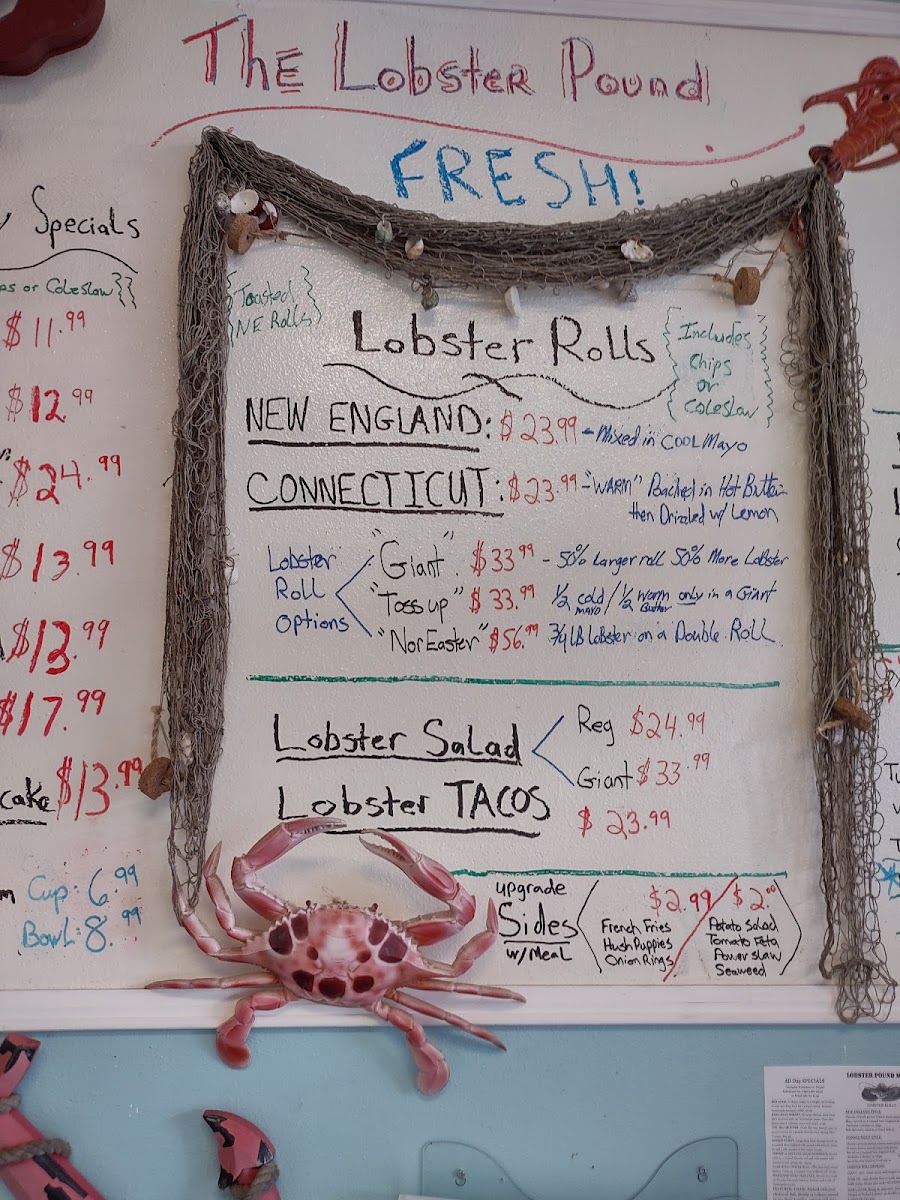 The Lobster Pound
FRESH!
Specials
or Coleslaw}}
$11.99
$12.99
$24.99
$13.99
$13.99
$17.99
cake $13.99
Cup: 6.99
Bowl: 8.99
{Toasted}
{NE Rolls}
Lobster Rolls
{Includes
Chips
or
Coleslaw}
NEW ENGLAND: $23.99 - Mixed in COOL Mayo
CONNECTICUT: $23.99 - "WARM" Poached in Hot Butter
then Drizzled w/ Lemon
Lobster
Roll
Options
"Giant". $33.99 - 50% Larger roll 50% More Lobster
"Toss up" $33.99 1/2 cold MAYO / 1/2 warm Butter only in a Giant
"NorEaster" $56.99 3/4 LB Lobster on a Double Roll
Lobster Salad
Reg $24.99
Giant $33.99
Lobster TACOS $23.99
upgrade
Sides
w/Meal
$2.99
French Fries
Hush Puppies
Onion Rings
$2.00
Potato Salad
Tomato Feta
Power slaw
Seaweed
All Day SPECIALS
LOBSTER POUND